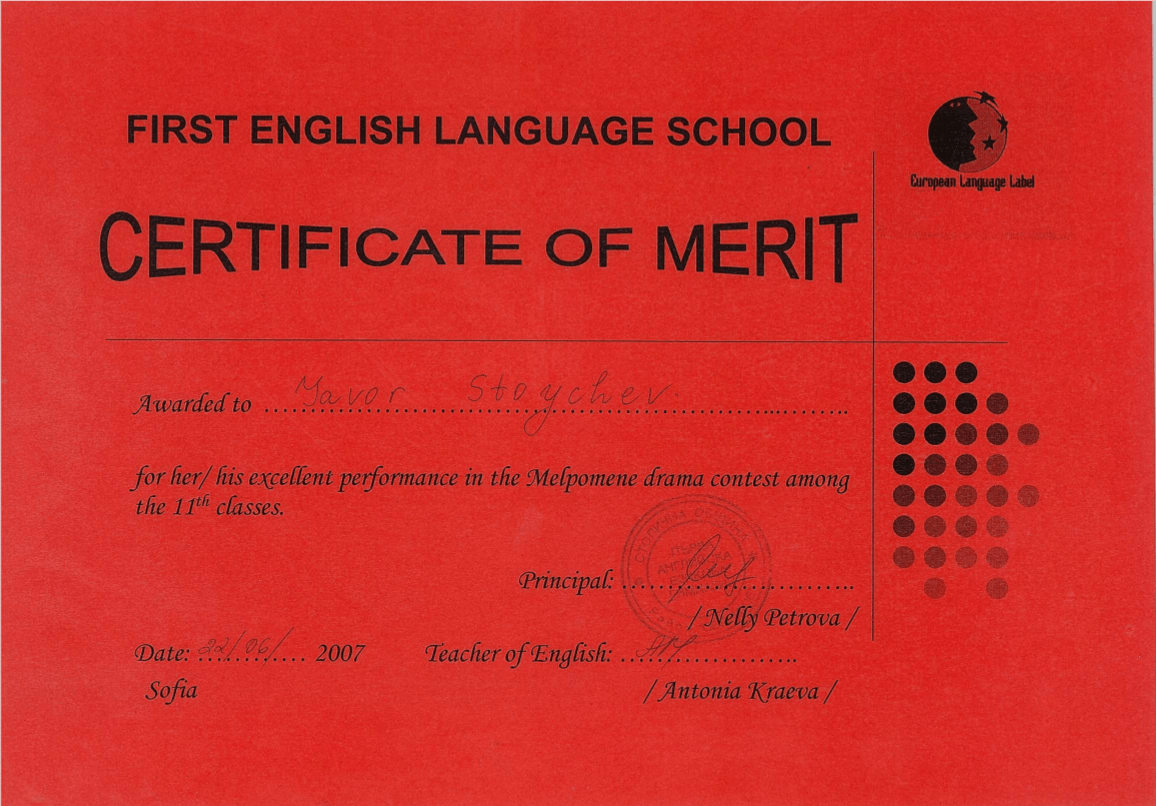 FIRST ENGLISH LANGUAGE SCHOOL
European Language Label
CERTIFICATE OF MERIT
Awarded to Yavor Stoychev
for her/ his excellent performance in the Melpomene drama contest among
the 11th classes.
Principal:
/ Nelly Petrova /
Date: 22/06/ 2007 Teacher of English:
Sofia / Antonia Kraeva /